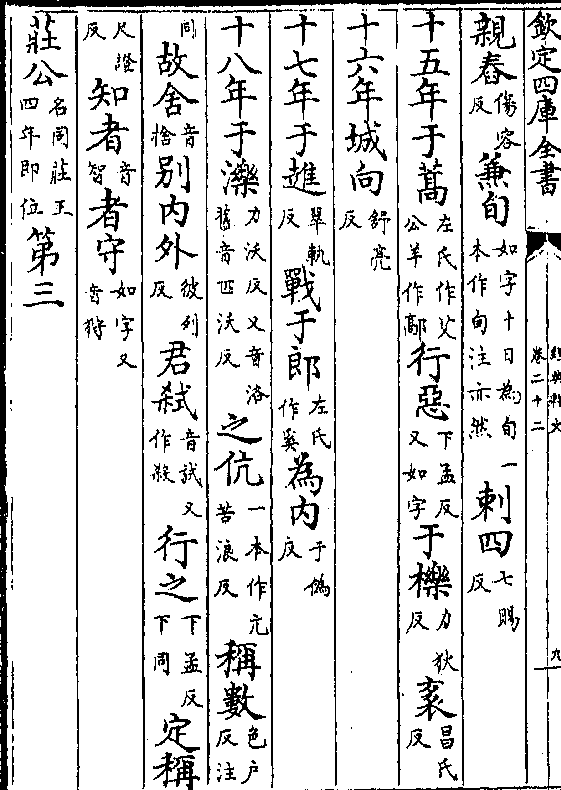 欽定四庫全書
經典釋文
卷二十二
九
親舂傷容反兼旬如字十日為旬一本作旬注亦然刺四七賜反
十五年于蒿左氏作艾公羊作鄗行惡下孟反又如字于櫟力狄反袲昌氏反
十六年城向舒亮反
十七年于進翠軌反戰于郎左氏作奚為内于偽反
十八年于濼力沃反又音洛舊音匹沃反之伉一本作亢苦浪反稱數色户反注
同故舍音捨别内外彼列反君弑音試又作殺行之下孟反下同定稱
尺證反知者音智者守如字又音狩
莊公名同莊王四年即位第三